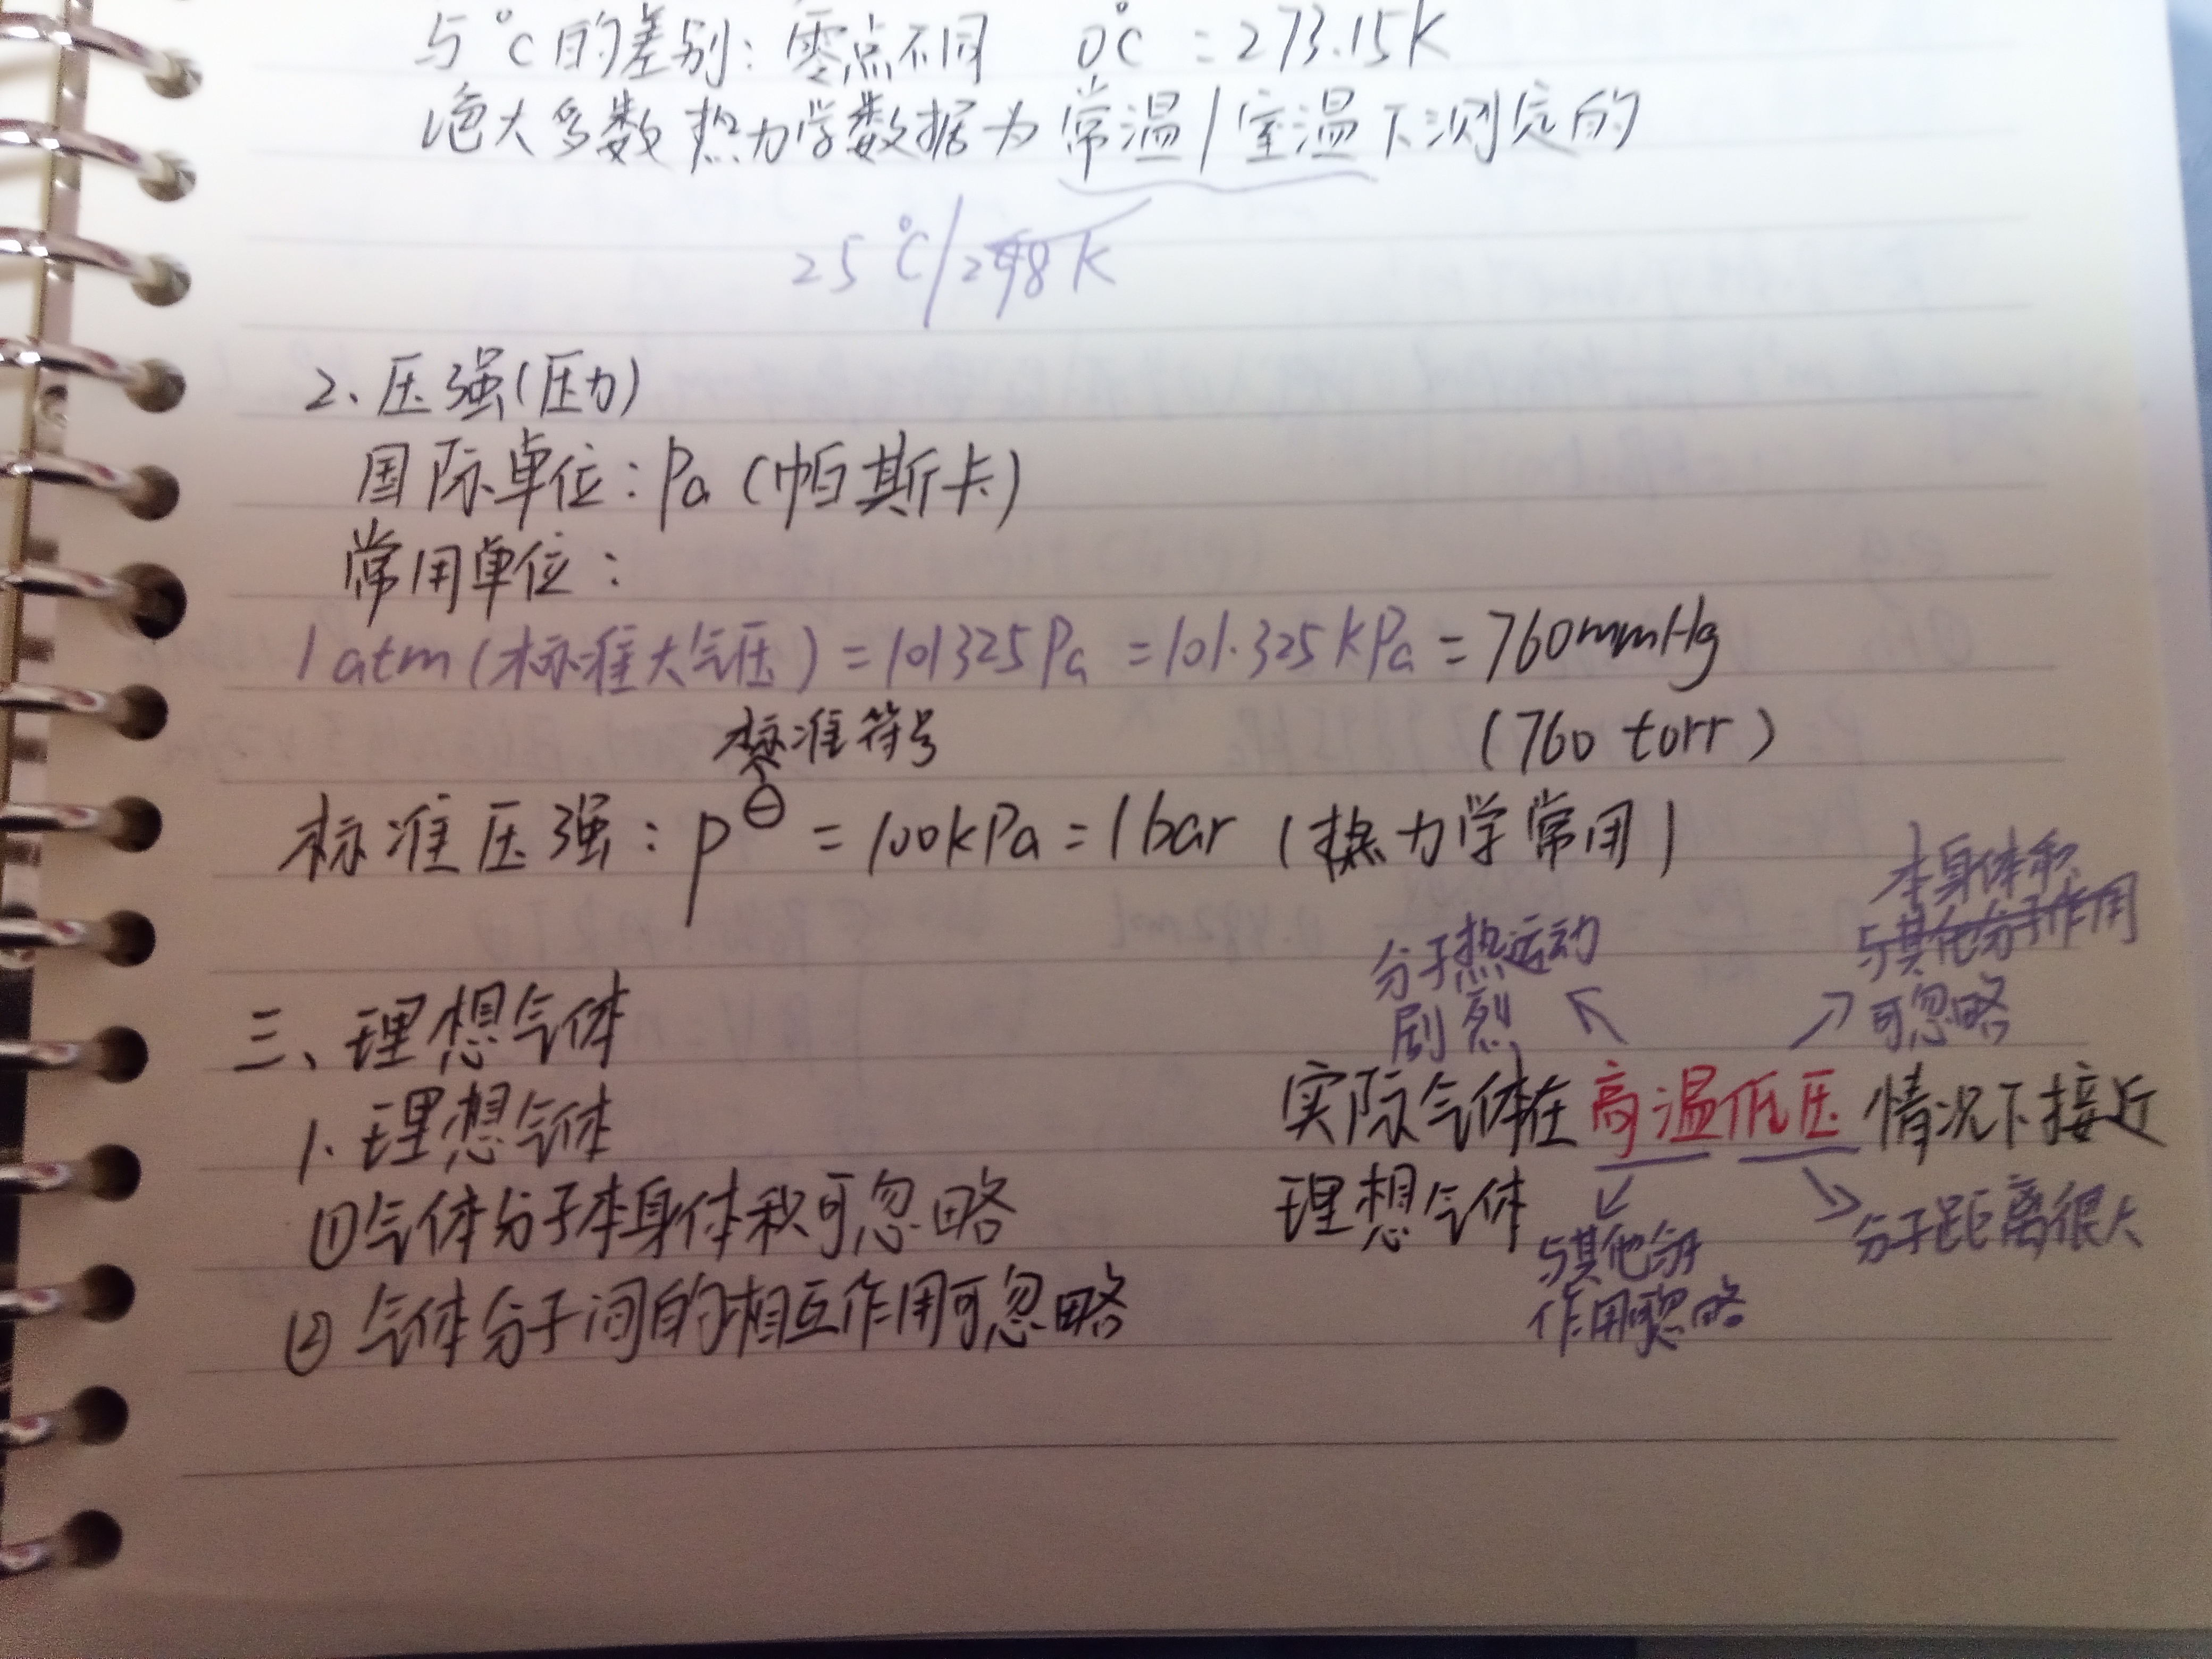 与℃的差别:零点不同 0℃ =273.15K
绝大多数热力学数据为常温/室温下测定的
25℃/298K
2、压强(压力)
国际单位:Pa(帕斯卡)
常用单位:
1atm(标准大气压)=101325Pa=101.325kPa=760mmHg
(760 torr)
标准符号
标准压强:p⊖=100kPa=1bar(热力学常用)
三、理想气体
1.理想气体
①气体分子本身体积可忽略
②气体分子间的相互作用可忽略
分子热运动
剧烈
本身体积
与其他分子作用
可忽略
实际气体在高温低压情况下接近
理想气体
与其他分子
作用可忽略
分子距离很大